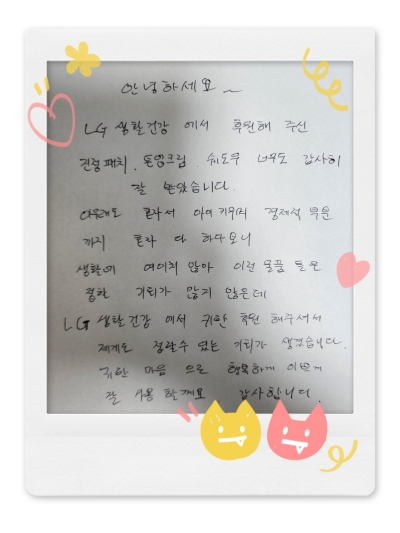 안녕하세요~
LG 생활건강 에서 후원해 주신
진정패치, 톤업크림, 섀도우 너무도 감사히
잘 받았습니다.
아무래도 혼자서 아이 키우며 경제적 부분
까지 혼자 다 하다보니
생활에 여의치 않아 이런 물품 들은
접할 기회가 많지 않은데
LG 생활건강 에서 귀한 후원 해주셔서
제게도 접할수 있는 기회가 생겼습니다.
귀한 마음 으로 행복하게 이쁘게
잘 사용 할께요 감사합니다.